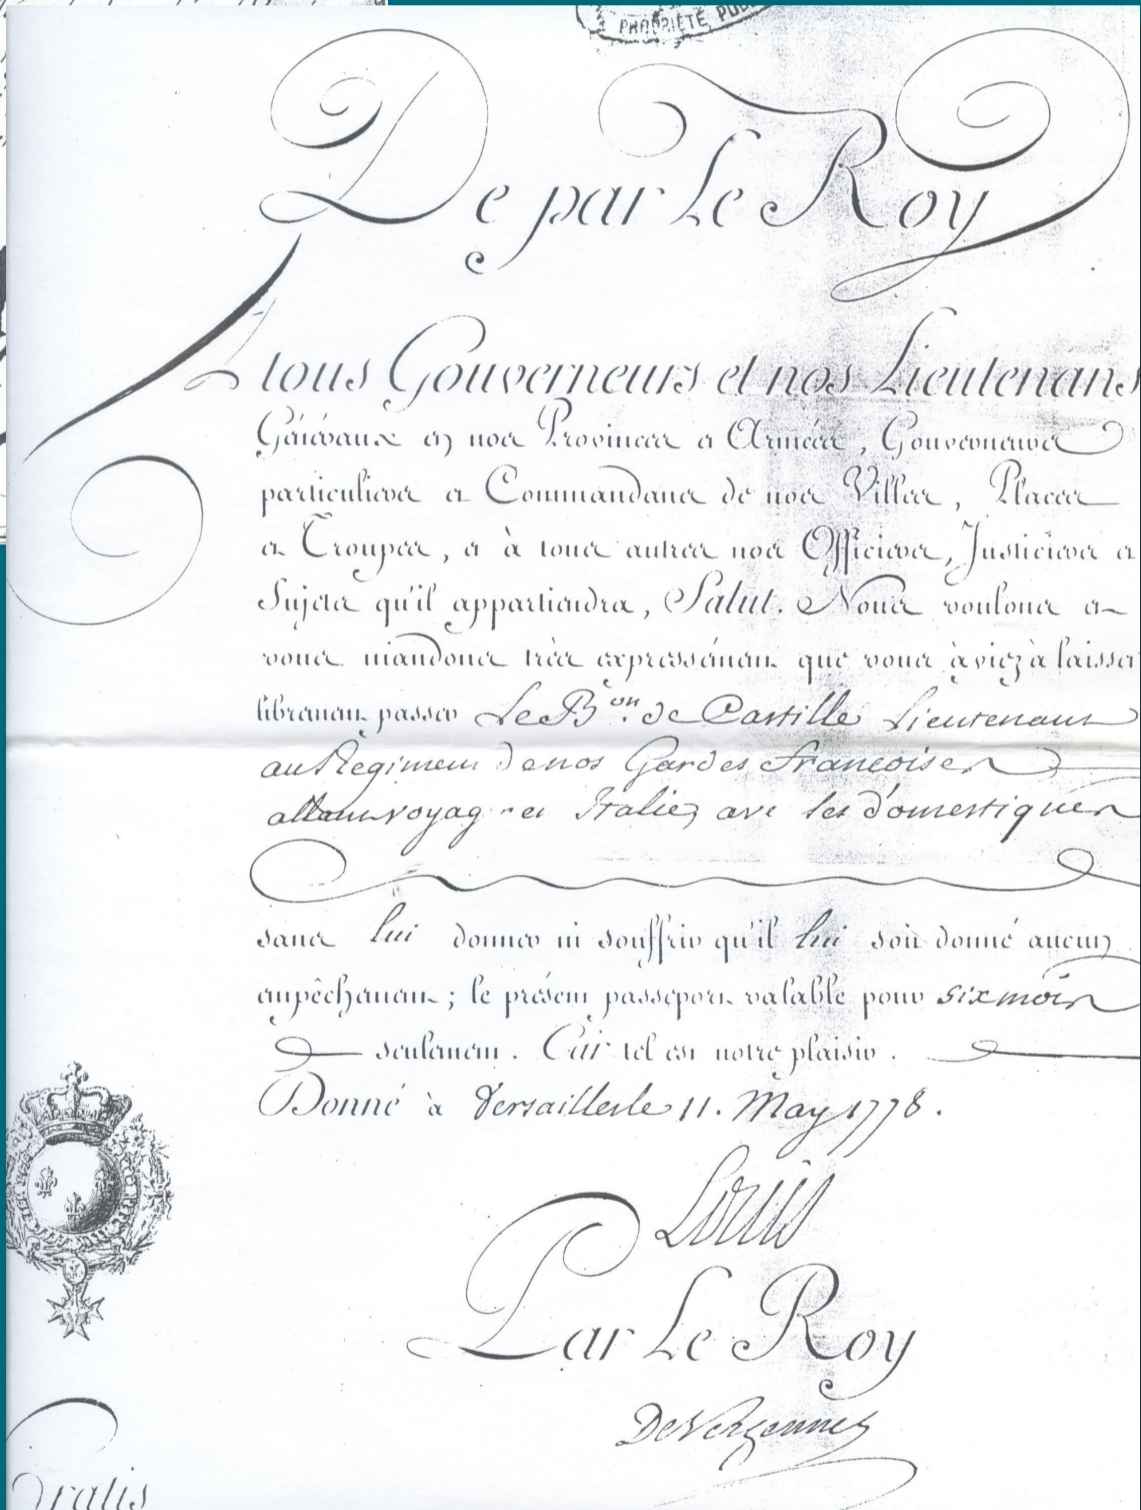 PROPRIÉTÉ PU
De par Le Roy
A tous Gouverneurs et nos Lieutenans
Généraux en nos Provinces et Armées, Gouverneurs
particuliers et Commandans de nos Villes, Places
et Troupes, et à tous autres nos Officiers, Justiciers et
Sujets qu'il appartiendra, Salut. Nous voulons et
vous mandons très expressément que vous àyiez à laisser
librement passer Le B.on de Castille Lieutenant
au Regiment de nos Gardes francoises
allant voyag er Italie, ave ses domestiques
sans lui donner ni souffrir qu'il lui soit donné aucun
empêchement ; le présent passeport valable pour six mois
seulement. Car tel est notre plaisir.
Donné à Versailles le 11. May 1778.
Louis
Par Le Roy
De Vergennes
Gratis